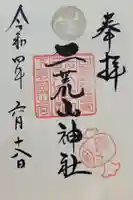 奉拝
二荒山神社
令和四年六月十八日